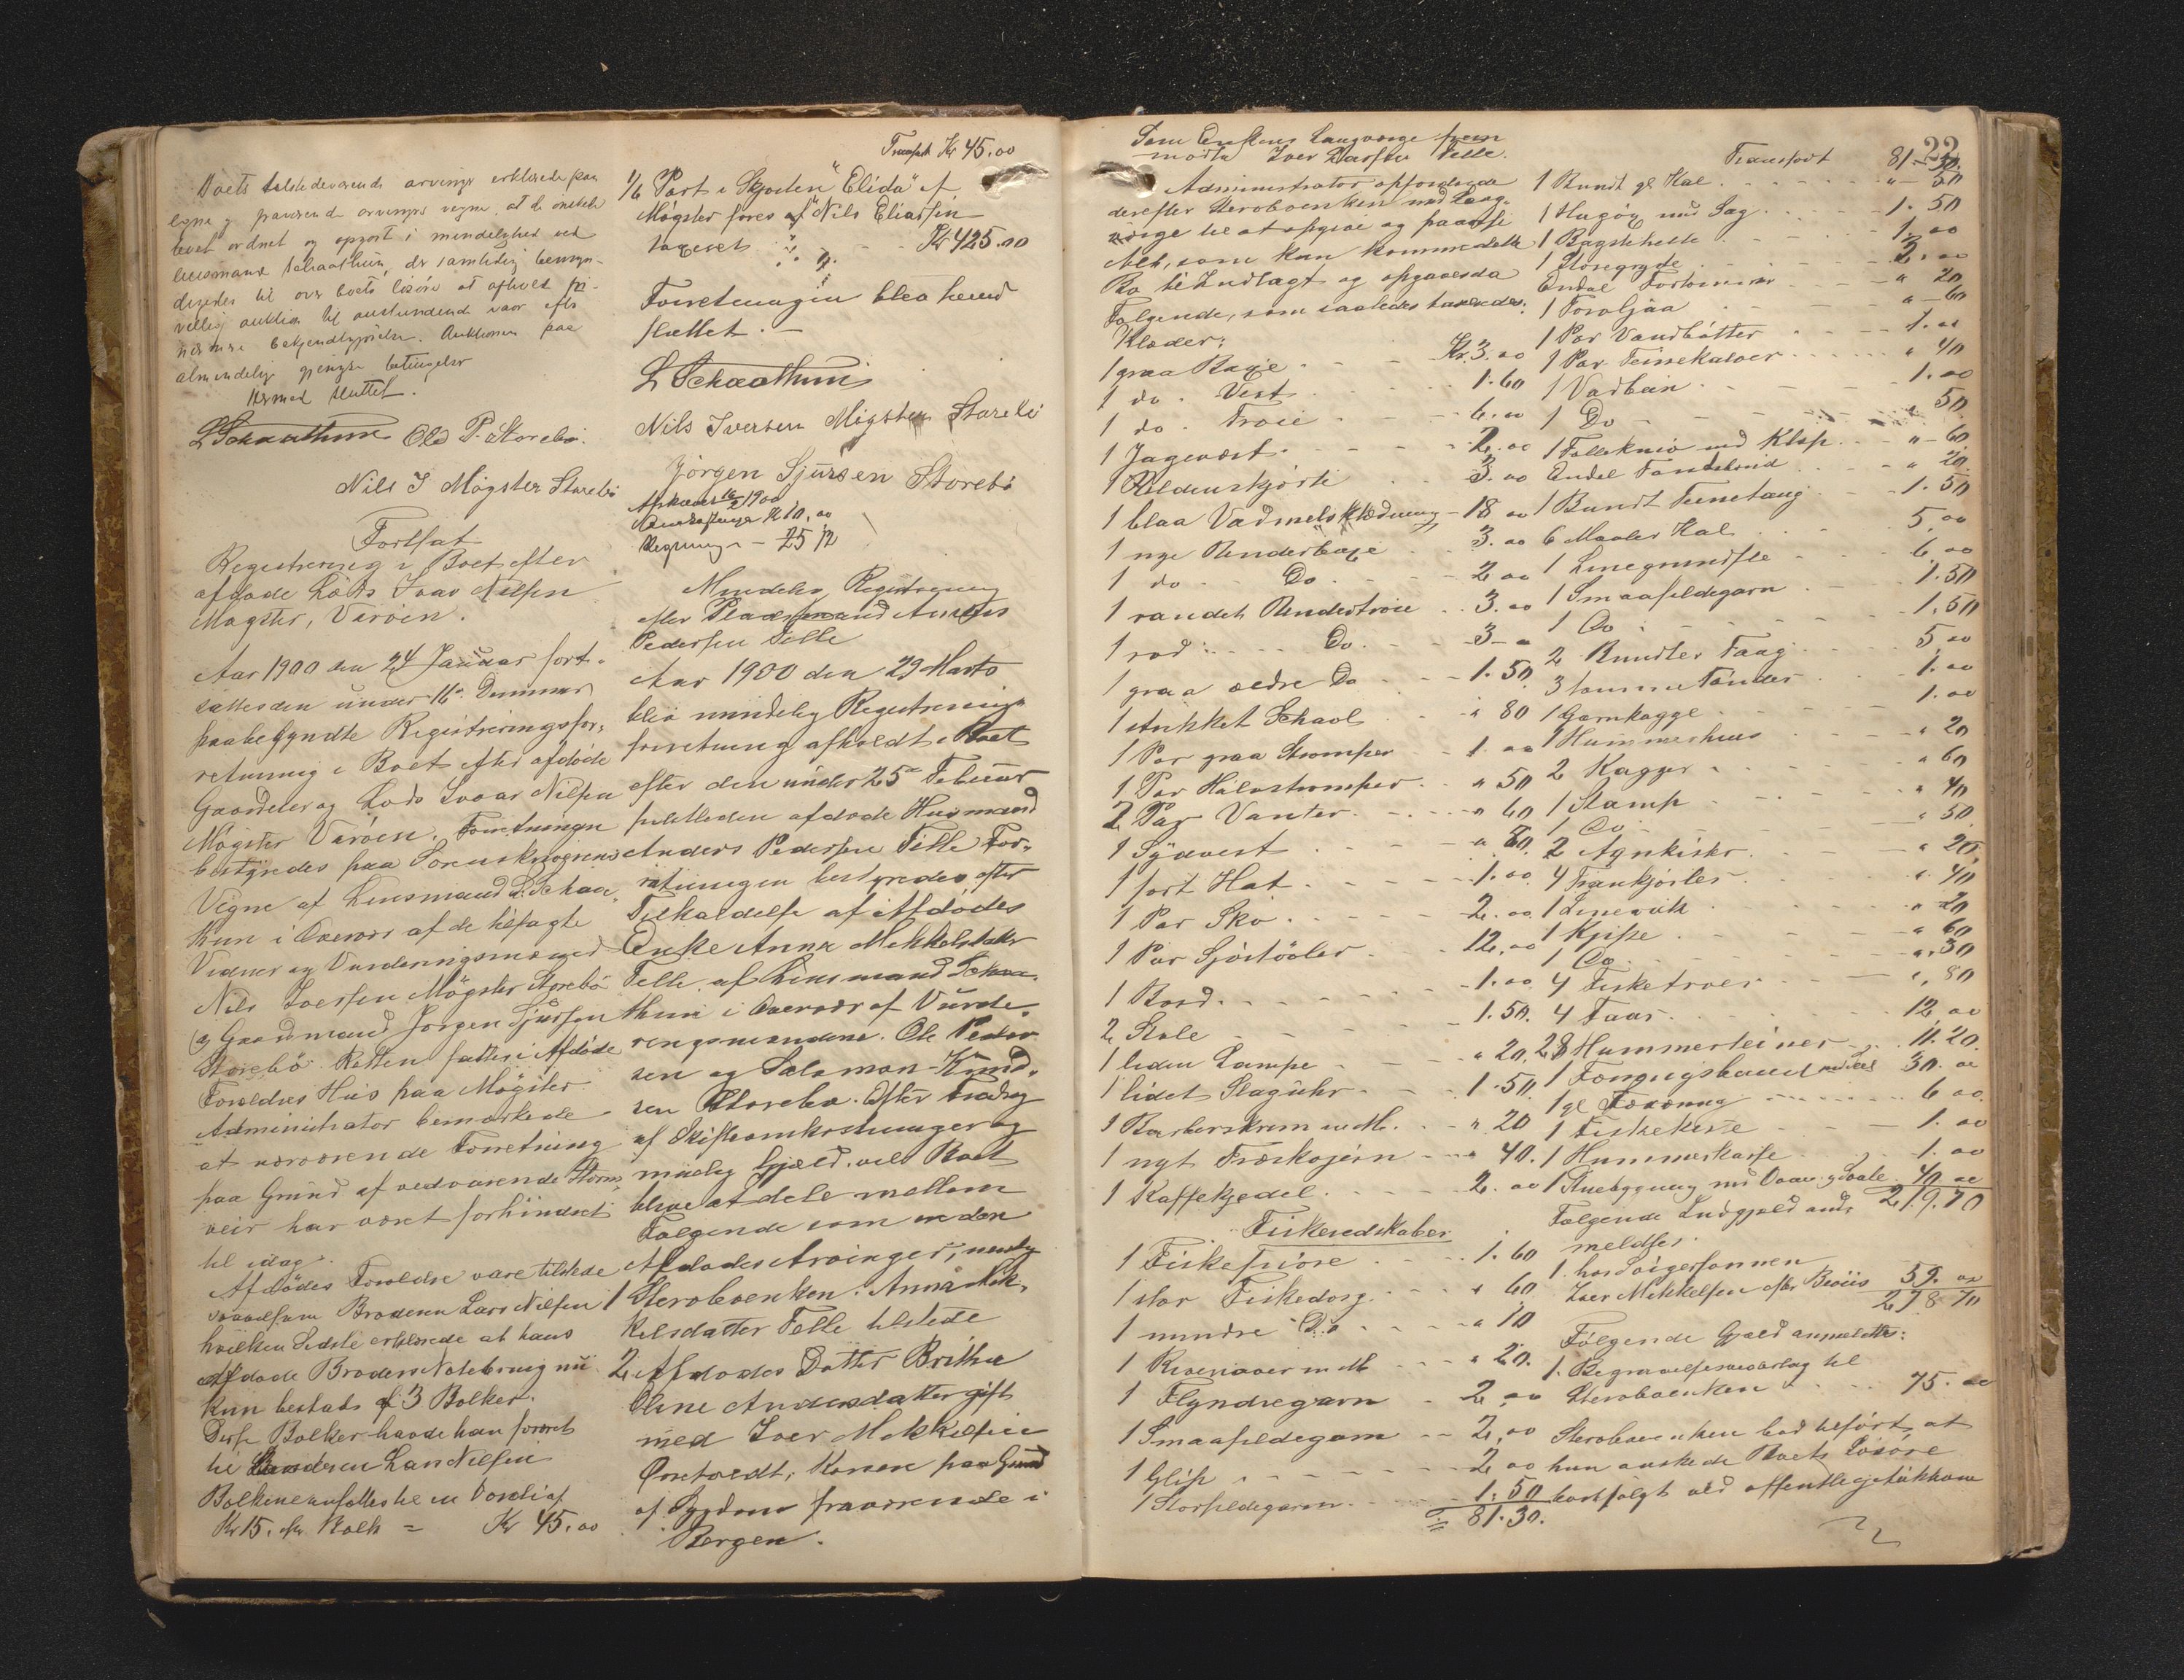 Boets tilstedeværende arvinger erklærede paa
egne og fraværende arvingers vegne, at de ønskede
boet ordnet og opgjort i mindelighed ved
lensmand Schaathun, der samtidig bemyn-
digedes til over boets løsøre at afholde fri-
villig auktion til anstundende vaar efter
nærmere bekjendtgjørelse. Auktionen paa
almindelig gjængse betingelser
Hermed sluttet.
L Schaathun Ole P. Storebø.
Nils I Møgster Storebø
Fortsat
Registrering i Boet efter
afdøde Lods Ivar Nilsen
Møgster, Værøen.
Aar 1900 den 24 Januar fort-
sattes den under 16de Demmer
paabegyndte Registreringsfor-
retning i Boet efter afdøde
Gaardeier og Lods Ivar Nilsen
Møgster Værøen. Forretningen
bestyredes paa Sorenskriverens
Vegne af Lensmand L. Schaa-
thun i Overvær af de tilsagte
Vidner og Vurderingsmænd
Nils Iversen Møgster Storebø
og Gaardmand Jørgen Sjursen
Storebø. Retten sattes i Afdøde
Forældres Hus paa Møgster
Administrator bemærkede
at nærværende Forretning
paa Grund af vedvarende Storm
veir har været forhindret
til idag.
Afdødes Forældre vare tilstede
saavelsom Broderen Lars Nilsen
hvilken Sidste erklærede at hans
afdøde Broders Notebrug nu
kun bestaar af 3 Bolker.
Disse Bolker havde han foræret
til Broderen Lars Nilsen
Bolkene ansattes til en Værdi af
Kr 15. pr. Bolk = Kr 45.00
Transport Kr 45.00
1/6 Part i Skjøiten "Elida" af
Møgster føres af Nils Eliassen
taxeret Kr 425.00
Forretningen blev hermed
sluttet.
L Schaathun
Nils Iversen Møgster Storebø
Jørgen Sjursen Storebø
Afskrevet 16/2 1900
Omkostninger Kr 10.00
Regning - 25 12
Mindelig Registrering
efter Pladsmand Anders
Pedersen Felle
Aar 1900 den 29 Marts
blev mindelig Registrerings
forretning afholdt i Boet
efter den under 25de Februar
sidstleden afdøde Husmand
Anders Pedersen Felle For-
retningen bestyredes efter
Tilkaldelse af Afdødes
Enke Anna Mikkelsdatter
Felle af Lensmand Schaa-
thun i Overvær af Vurde-
ringsmændene Ole Peder
sen og Salomon Knud-
sen Storebø. Efter Fradrag
af Skifteomkostninger og
mulig Gjæld vil Boet
blive at dele mellem
Følgende som ere den
Afdødes Arvinger, nemlig
1 Sterboenken: Anna Mik
kelsdatter Felle tilstede
2 Afdødes Datter Britha
Oline Andersdatter gift
med Iver Mikkelsen
Konen paa Grund
af Sygdom fraværende i
Bergen.
Som Enkens Laugværge frem
mødte Iver Larsen Felle.
Administrator opfordrede
derefter Sterboenken med Laug-
værge til at opgive og paavise
Alt, som kan komme dette
Bo til Indtægt og opgaves da
Følgende, som saaledes taxeredes:
Klæder:
1 graa Buxe Kr. 3.00
1 do. Vest 1.60
1 do. Trøie 6.00
1 Jagevest 2.00
1 Uldenskjorte 3.00
1 blaa Vadmelsklædning 18 00
1 nye Underbuxe 3.00
1 do. Do. 2 00
1 randet Undertrøie 3.00
1 rød Do. 3 "
1 graa ældre Do 1.50
1 strikket Schavl " 80
1 Par graa Strømper 1.00
1 Par Halvstrømper " 50
2 Par Vanter " 60
1 Sydvest " 80
1 sort Hat 1.00
1 Par Sko 2.00
1 Par Sjøstøvler 12.00
1 Bord 1.00
2 Stole 1.50.
1 liden Lampe " 20
1 lidet Slaguhr 1.50
1 Barberskrin m M. " 20
1 nyt Træskojern " 40.
1 Kaffekjedel 2.00
Fiskeredskaber
1 Fiskesnøre 1.60
1 stor Fiskedorg " 60
1 mindre Do " 10
1 m M " 20.
1 Flyndregarn 2.00
1 Smaasildegarn 2.00
1 Glip 2 00
1 Storsildegarn 1.50
81.30.
22
Transport 81.30
1 Bundt gl Kal " 50
1 Hugøx med Sag 1.50
1 Bagstehelle 1.00
1 Storegryde 2.00
Endel " 20
1 Torvljaa " 60
1 Par Vandbøtter 1.00
1 Par Teinekalver " 40
1 Vadbein 1.00
1 Do " 50
1 Follekniv med Klap " 60
Endel " 20
1 Bundt Teinetaug 1.50
6 Maaler Kal 5.00
1 Linegrundsle 6.00
1 Smaasildegarn 1.50
1 Do 1.50
2 Bundter Taag 5.00
3 tomme Tønder 1.00
1 Garnkagge 1.00
1 Hummerhus " 20
2 Kagger " 60
1 Stamp " 40
1 Do " 50
2 Agnkister " 20
4 Trankjørler " 40
1 " 20
1 Kjipe " 60
1 Do " 30
4 Fisketroer " 80
4 Faar 12 00
28 Hummerteiner 11.20.
1 30.00
1 gl Færing 6 00
1 Fiskekiste 1.00
1 Hummerkasse 1.00
1 Stuebygning 40 00
219.70
Følgende Indgjæld an-
meldtes:
1. hos Svigersønnen
Iver Mikkelsen efter Beviis 59.00
278 70
Følgende Gjæld anmeldtes:
1. Begravelsesudlæg til
Sterboenken 75.00
Sterboenken bad tilført, at
hun ønskede Boets Løsøre
bortsolgt ved offentlig Auktion